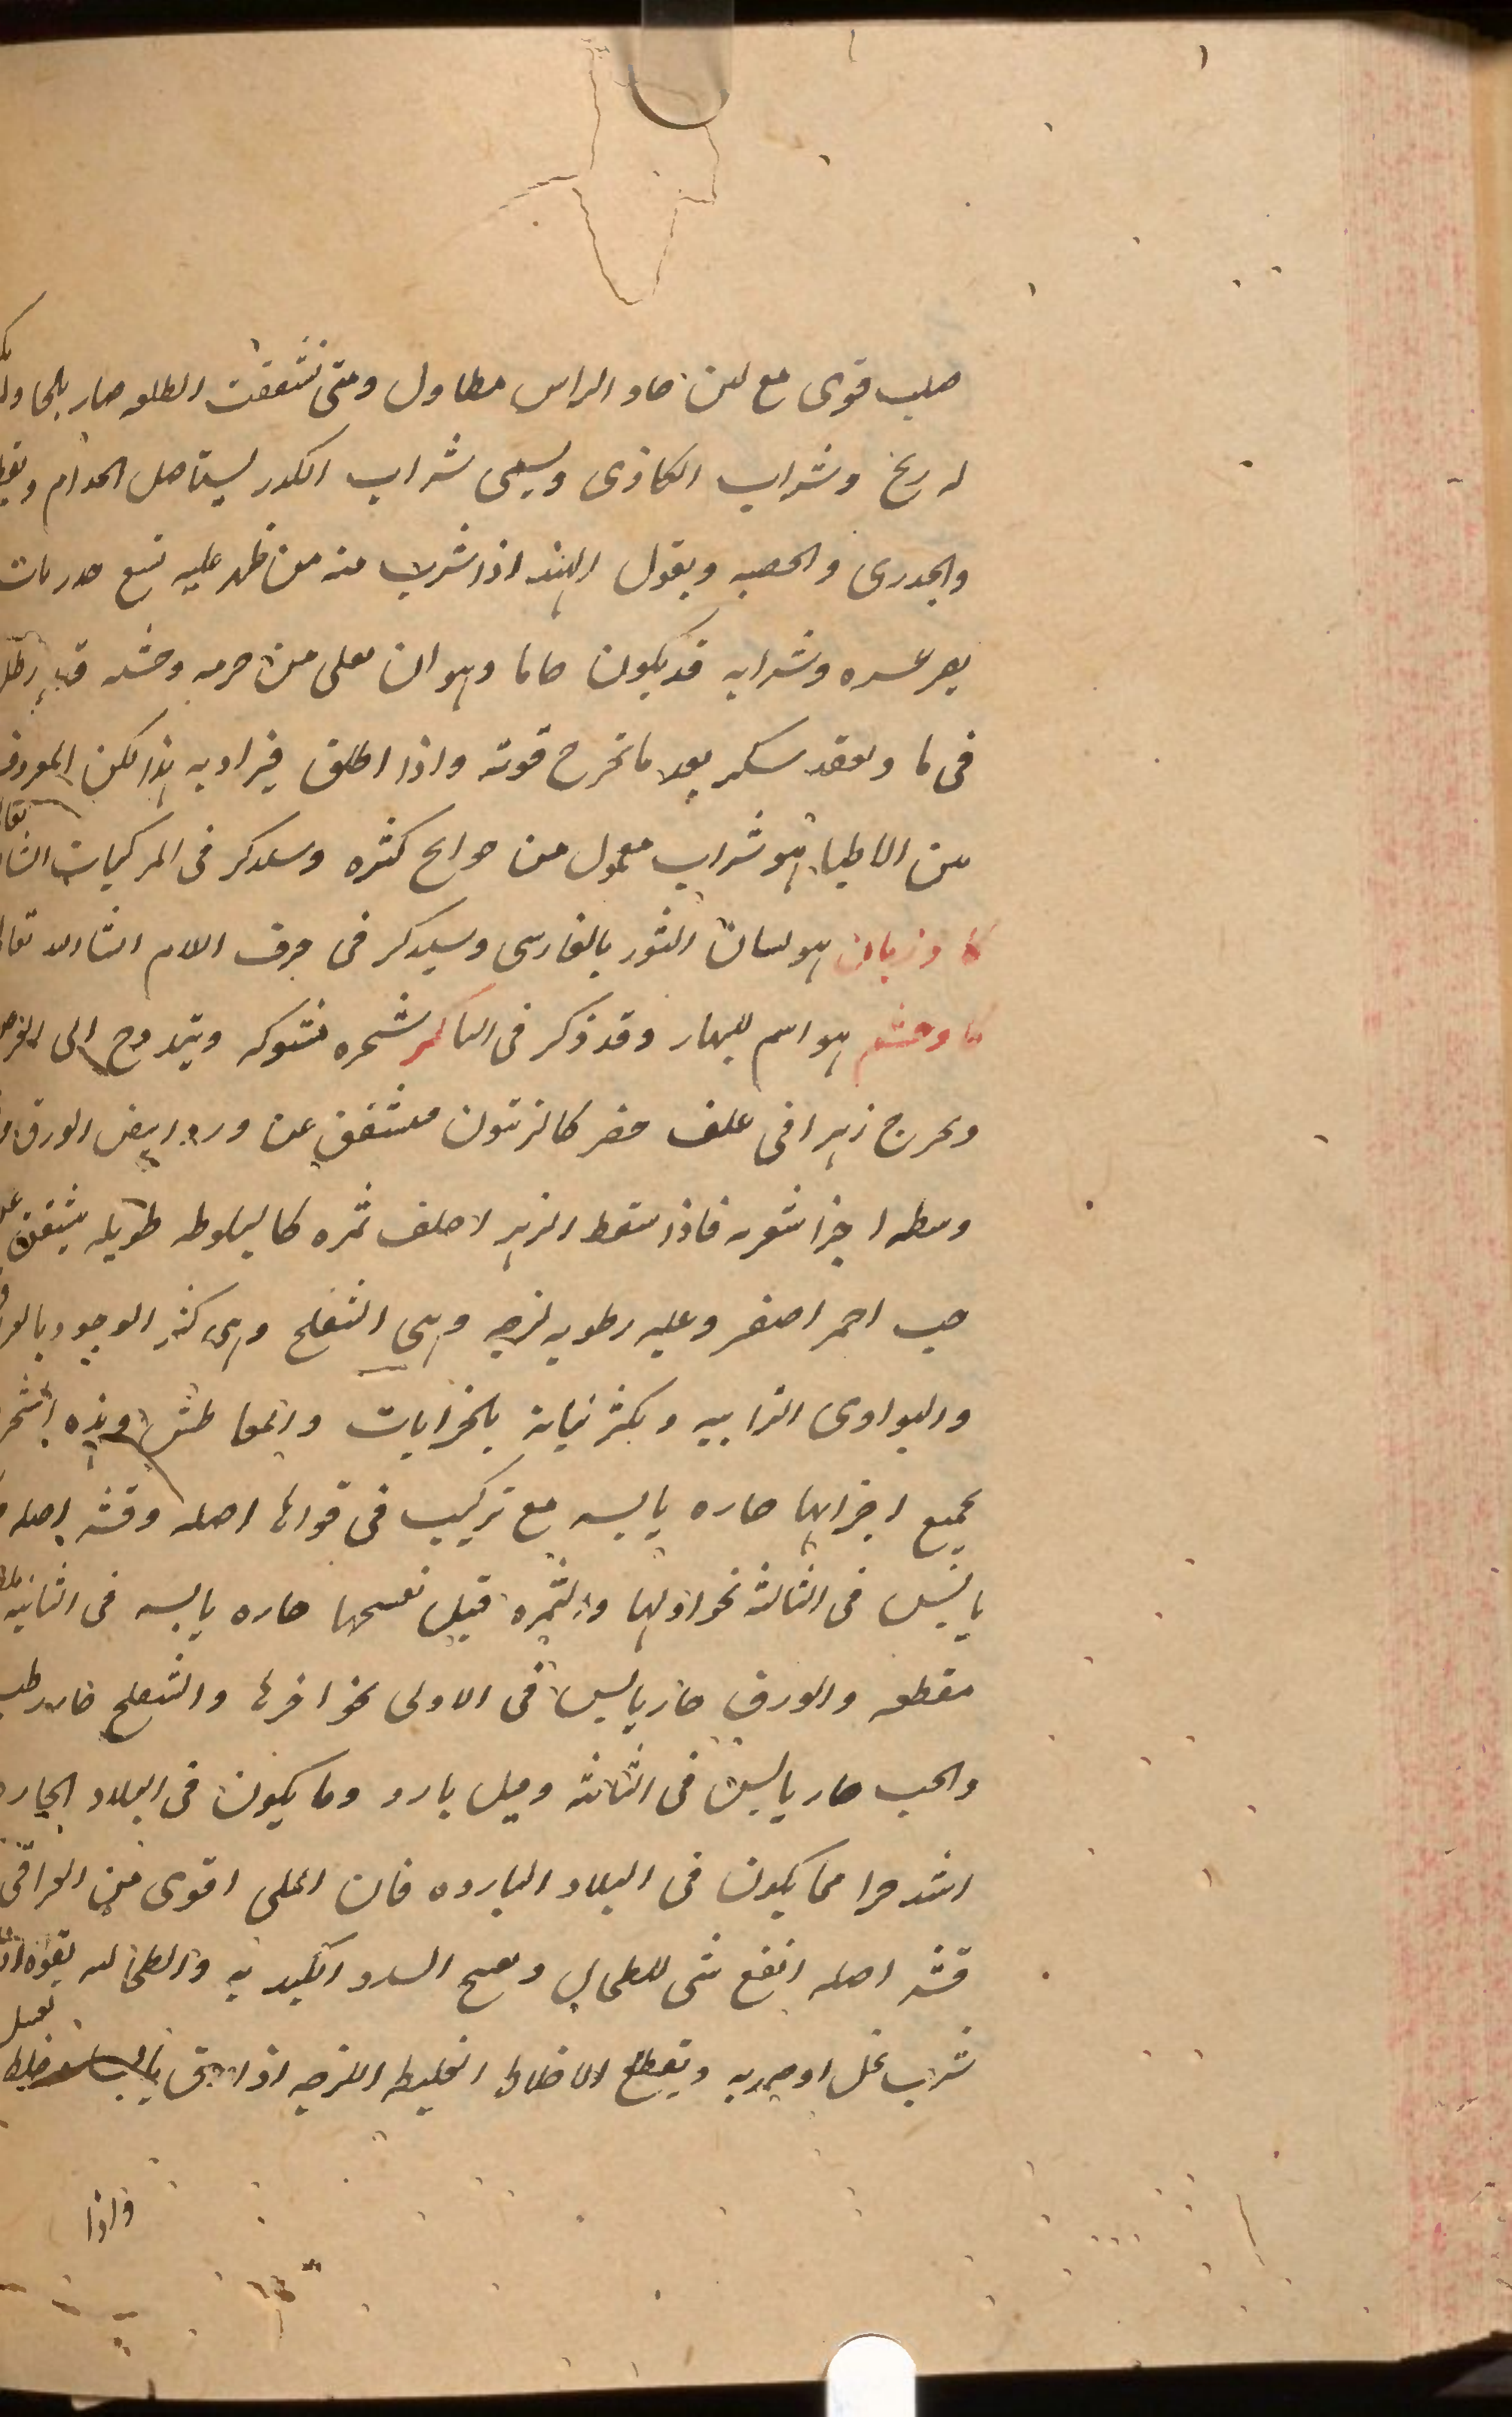 صلب قوى مع لين حاد الراس مطاول ومتى تشققت الطلعه صار بلحا
له ريح وشراب الكاذى ويسمى شراب الكدر يستاصل الجذام
والجدرى والحصبه ويقول الهند اذا شرب منه من ظهر عليه تسع جدريات
وشرابه قد يكون وهو ان يغلى من
فى ما ويعقد بسكر بعد ما تخرج قوته واذا اطلق فيراد به هذا لكن المعروف
بين الاطبا هو شراب معمول من حوايج كثيره وسيذكر فى المركبات
كاوزبان هو لسان الثور بالفارسى وسيذكر فى حرف اللام انشا الله تعالى
كاوچشم هو اسم للبهار وقد ذكر فى البا كبر شجره مشوكه
ويخرج زهرا فى غلف خضر كالزيتون متشقق عن ورد ابيض الورق
وسطه اجزا شعريه فاذا سقط الزهر اخلف ثمره كالبلوطه طويله يتشقق
حب احمر اصفر وعليه رطوبه لزجه وهى الشفلح وهى كثير الوجود
والبوادى الترابيه ويكثر نباته بالخرابات والمعاطش وهذه
بجميع اجزايها حاره يابسه مع تركيب فى قواها اصله وقشر اصله
يابس فى الثالثه نحو اولها والثمره قبل نضجها حاره يابسه فى الثانيه
مقطعه والورق حار يابس فى الاولى نحو اخرها والشفلح حار رطب
والحب حار يابس فى الثالثه وقيل بارد وما يكون فى البلاد الحاره
اشد حرا مما يكون فى البلاد البارده فان المكى اقوى من العراقى
قشر اصله انفع شى للطحال ويفتح السدد الكبديه والطحاليه بقوه اذا
شرب بخل او ويقطع الاخلاط الغليظه اللزجه اذا
واذا